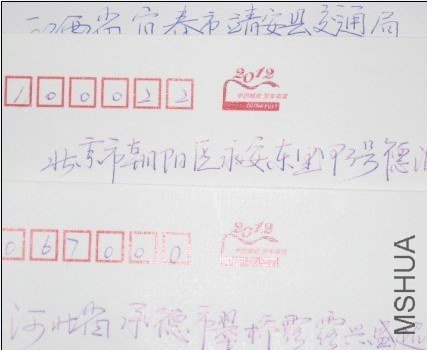 江西省宜春市靖安县交通局
100022
2012
中国邮政 贺年有奖
CHINA POST
北京市朝阳区永安东里甲3号德
067000
2012
中国邮政 贺年有奖
河北省承德市翠桥路
MSHUA